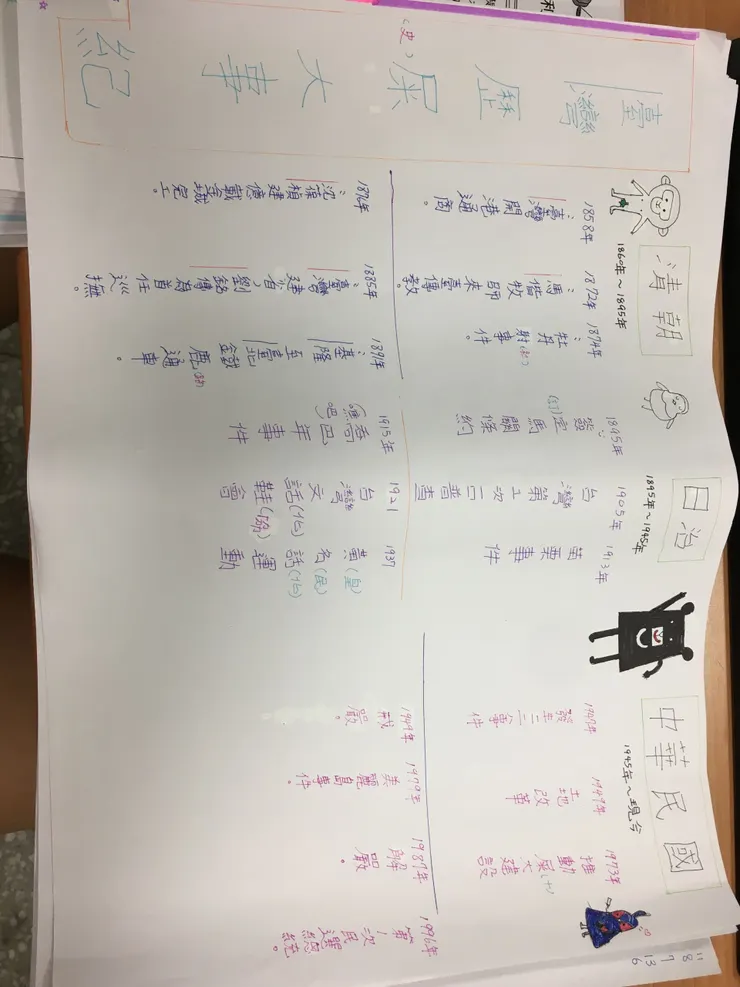 臺灣歷屎(史)大事紀
清朝
1860年~1895年
1858年:臺灣開港通商。
1872年:馬偕牧師來臺傳教
1874年:牡丹射(社)事件。
1876年:沈葆楨建億戴金城完工。
1885年:臺灣建省,劉銘傳為首任巡撫。
1891年:基隆至臺北鐵鹿(路)通車。
日治
1895年~1945年
1895年:簽定(訂)馬關條約
1905年 台灣第一次 口普查
1913年 苗栗事件
1915年 年事件
1921 台灣文話(化)鞋(協)會
1937 黃(皇)名(民)話(化)運動
中華民國
1945年~現今
1947年 發生二二八事件
1949年 土地改革
1973年 推動 大建設
1949年 戒嚴。
1979年 美麗島事件。
1987年 解嚴。
1996年 第1次民選總統。